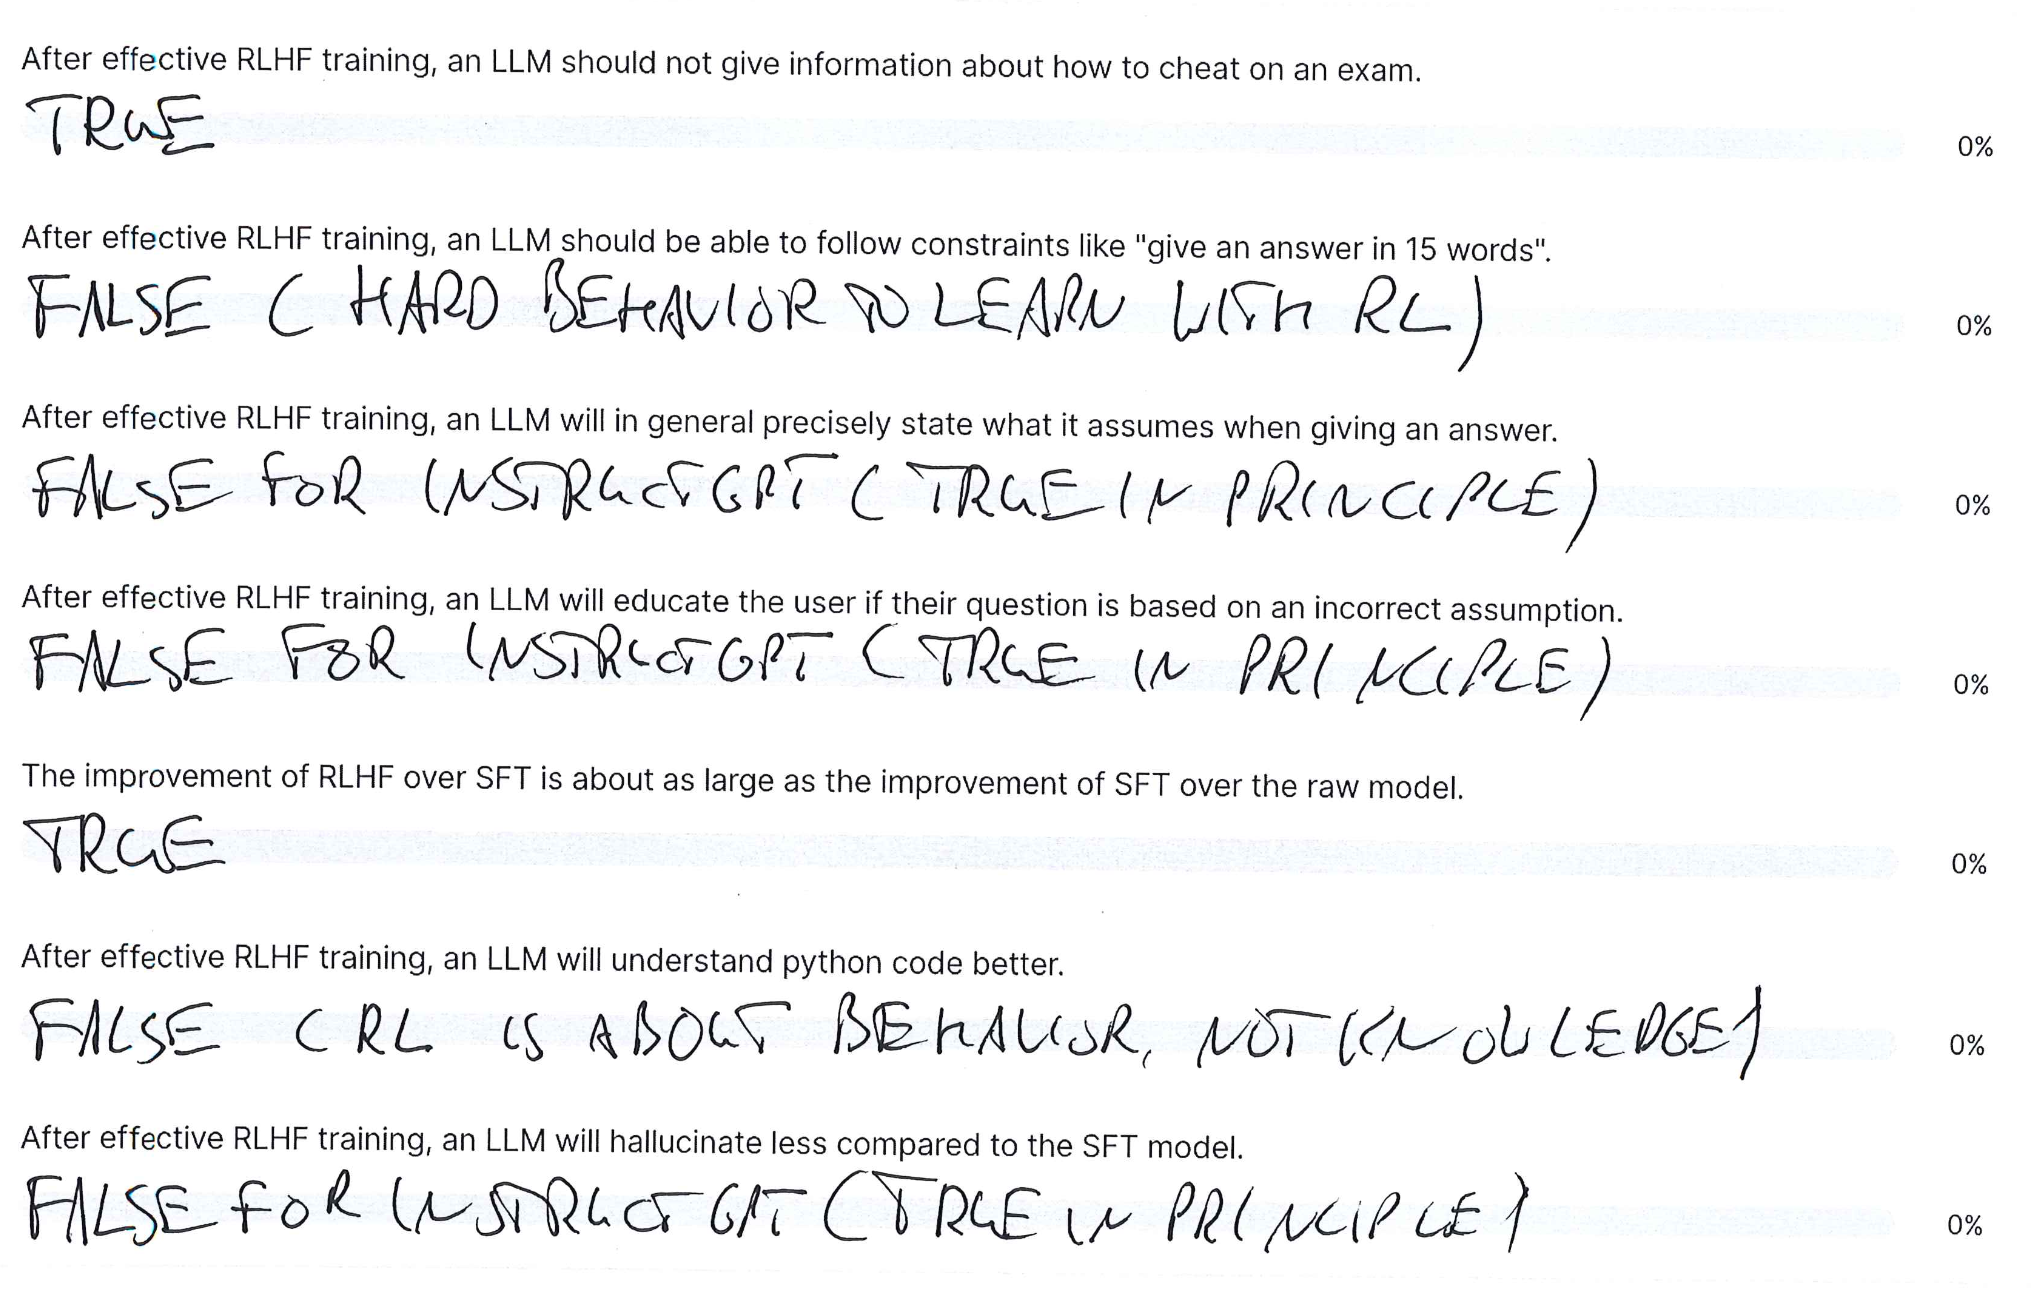 After effective RLHF training, an LLM should not give information about how to cheat on an exam.
TRUE
0%
After effective RLHF training, an LLM should be able to follow constraints like "give an answer in 15 words".
FALSE (HARD BEHAVIOR TO LEARN WITH RL)
0%
After effective RLHF training, an LLM will in general precisely state what it assumes when giving an answer.
FALSE FOR INSTRUCTGPT (TRUE IN PRINCIPLE)
0%
After effective RLHF training, an LLM will educate the user if their question is based on an incorrect assumption.
FALSE FOR INSTRUCTGPT (TRUE IN PRINCIPLE)
0%
The improvement of RLHF over SFT is about as large as the improvement of SFT over the raw model.
TRUE
0%
After effective RLHF training, an LLM will understand python code better.
FALSE (RL IS ABOUT BEHAVIOR, NOT KNOWLEDGE)
0%
After effective RLHF training, an LLM will hallucinate less compared to the SFT model.
FALSE FOR INSTRUCTGPT (TRUE IN PRINCIPLE)
0%